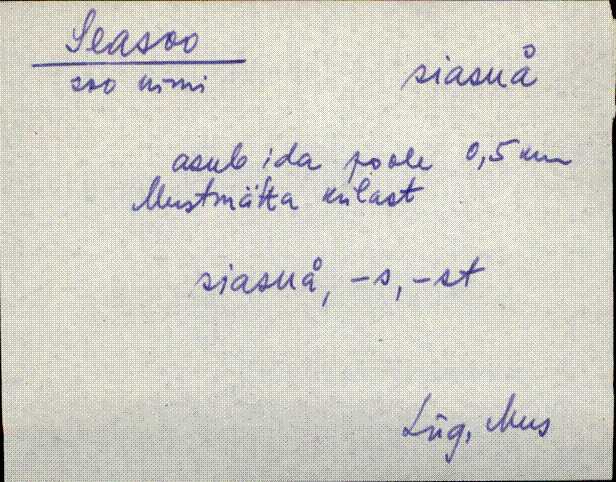 Seasoo
soo nimi
siasuå
asub ida poole 0,5 km
Mustmätta külast
siasuå, -s, -st
Lüg, Mus